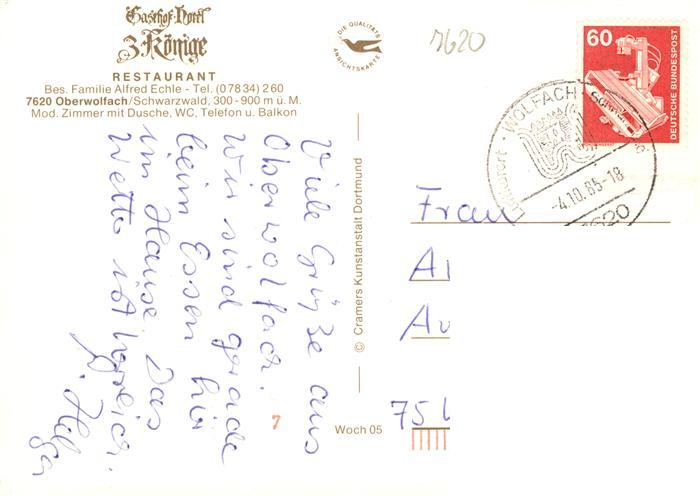 Gasthof-Hotel
3 Könige
RESTAURANT
Bes. Familie Alfred Echle - Tel. (07834) 260
7620 Oberwolfach/Schwarzwald, 300-900 m ü. M.
Mod. Zimmer mit Dusche, WC, Telefon u. Balkon
DIE QUALITÄTS
ANSICHTSKARTE
7620
60
DEUTSCHE BUNDESPOST
WOLFACH
-4.10.85-18
7620
Viele Grüße aus
Oberwolfach.
Wir sind gerade
beim Essen hier
im Hause. Das
Wetter ist herrlich.
Helga
© Cramers Kunstanstalt Dortmund
7
Woch 05
Frau
Al
Au
75